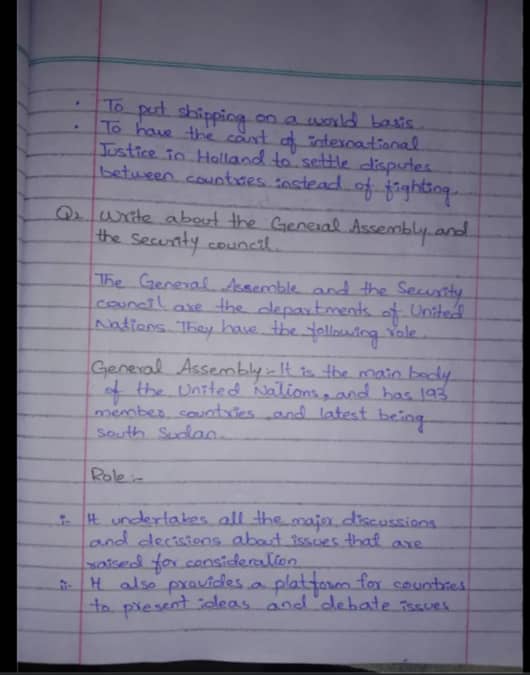 • To put shipping on a world basis.
• To have the court of international
Justice in Holland to settle disputes
between countries instead of fighting.
Q2 write about the General Assembly and
the security council.
The General Assemble and the Security
council are the departments of United
Nations. They have the following role.
General Assembly:- It is the main body
of the United Nations, and has 193
member countries and latest being
south Sudan.
Role:-
i- It undertakes all the major discussions
and decisions about issues that are
raised for consideration
ii- It also provides a platform for countries
to present ideas and debate issues